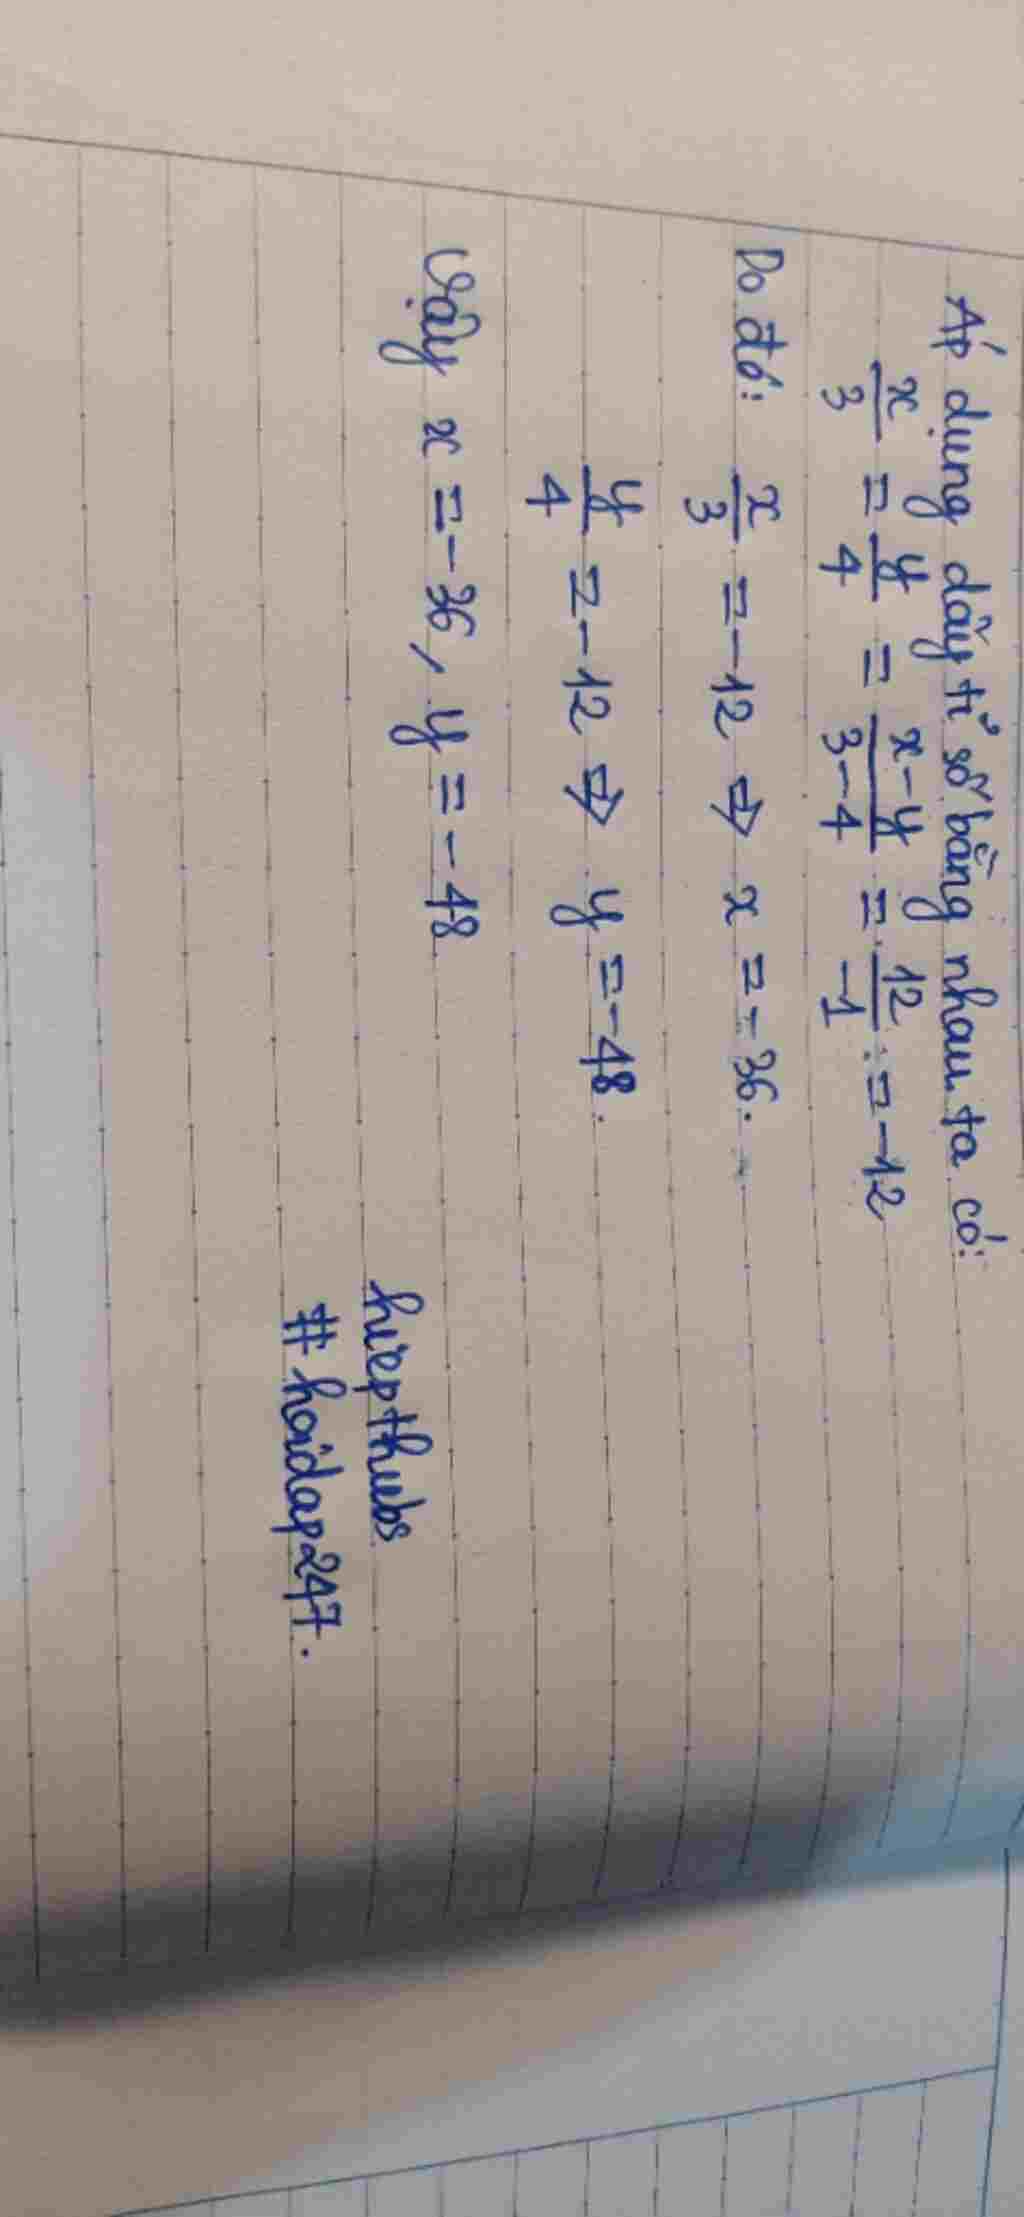 Áp dụng dãy tỉ số bằng nhau ta có:
x/3 = y/4 = x-y/3-4 = 12/-1 = -12
Do đó: x/3 = -12 ⇒ x = -36.
y/4 = -12 ⇒ y = -48.
Vậy x = -36, y = -48
hiepthubs
#hoidap247.